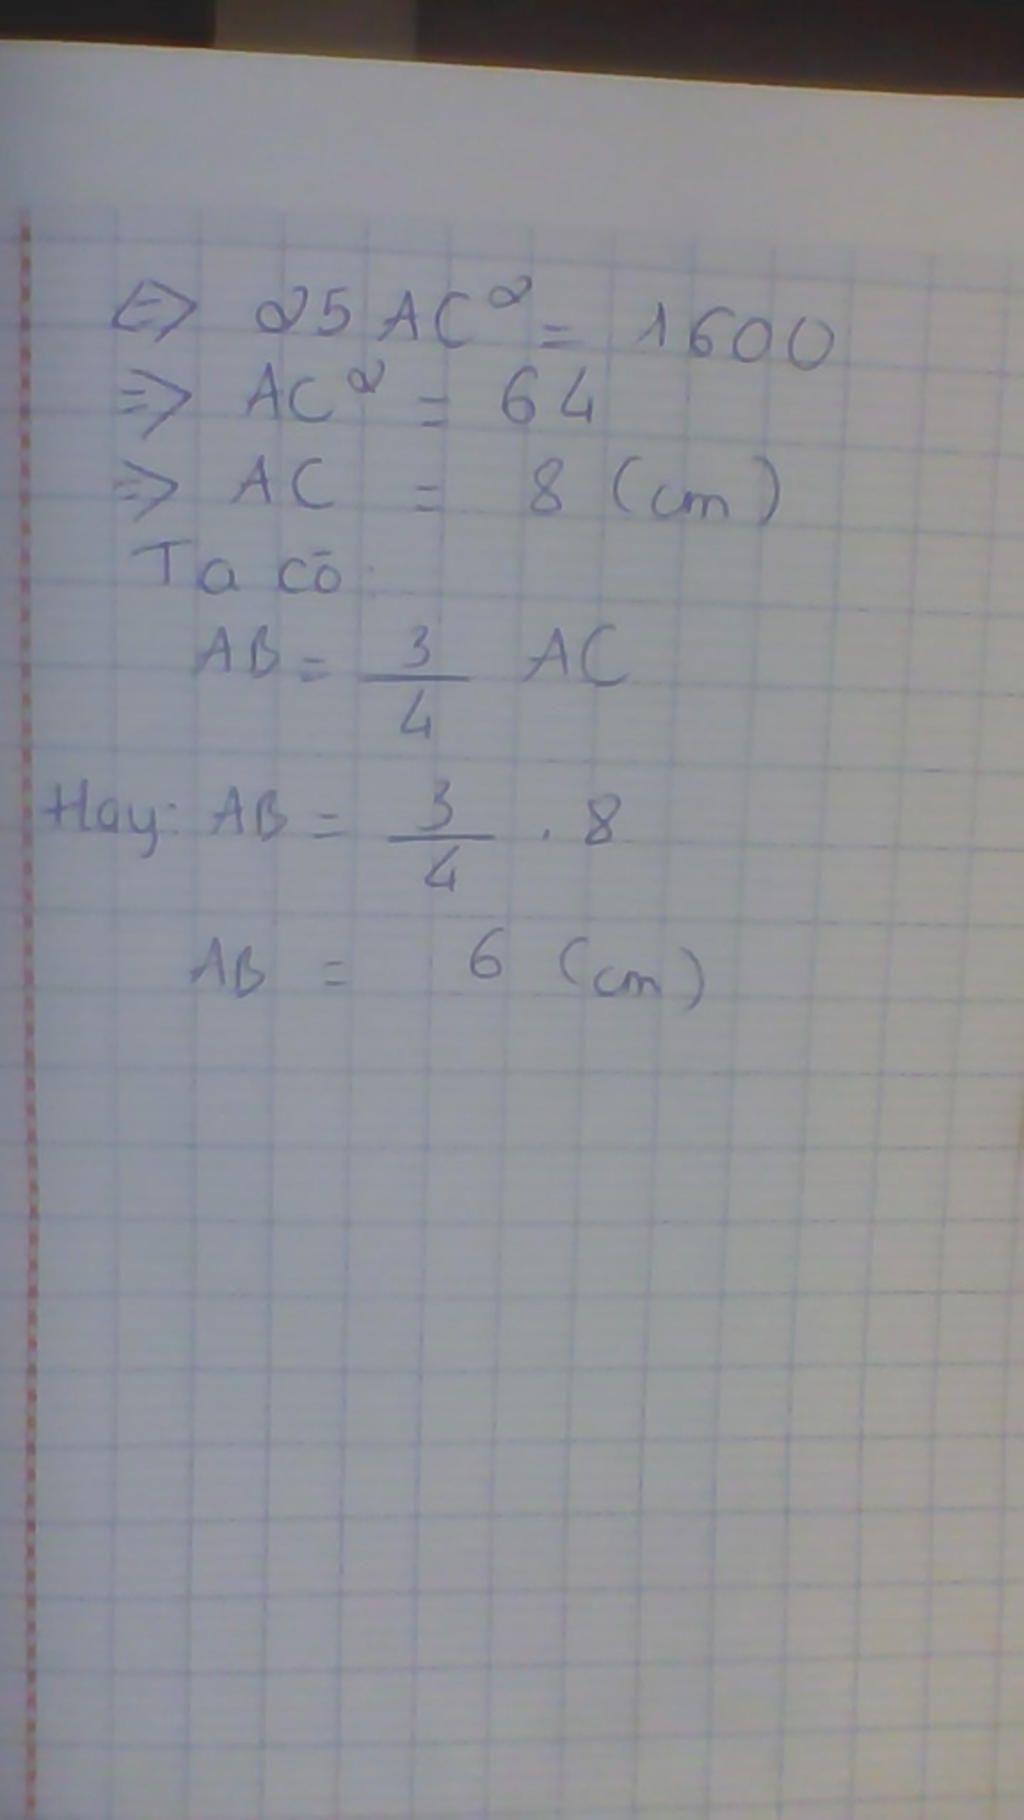 <=> 25 AC² = 1600
=> AC² = 64
=> AC = 8 (cm)
Ta có:
AB = 3/4 AC
Hay: AB = 3/4 . 8
AB = 6 (cm)